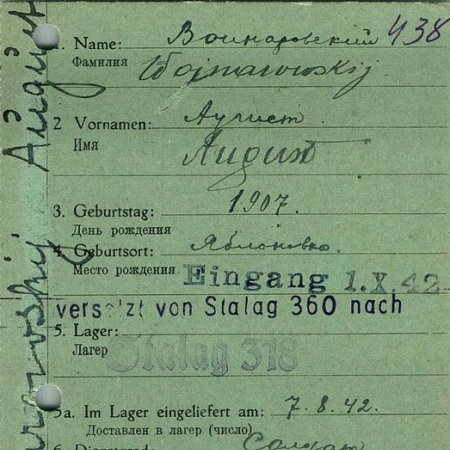 1. Name: Войнаровский 438
Фамилия Wojnarowskij
2 Vornamen: Аугист
Имя August
3. Geburtstag: 1907.
День рождения
4. Geburtsort: Яблоновка.
Место рождения Eingang 1.X.42
versetzt von Stalag 360 nach
5. Lager:
Лагерь Stalag 318
5a. Im Lager eingeliefert am: 7.8.42.
Доставлен в лагерь (число)
6. Солдат
August